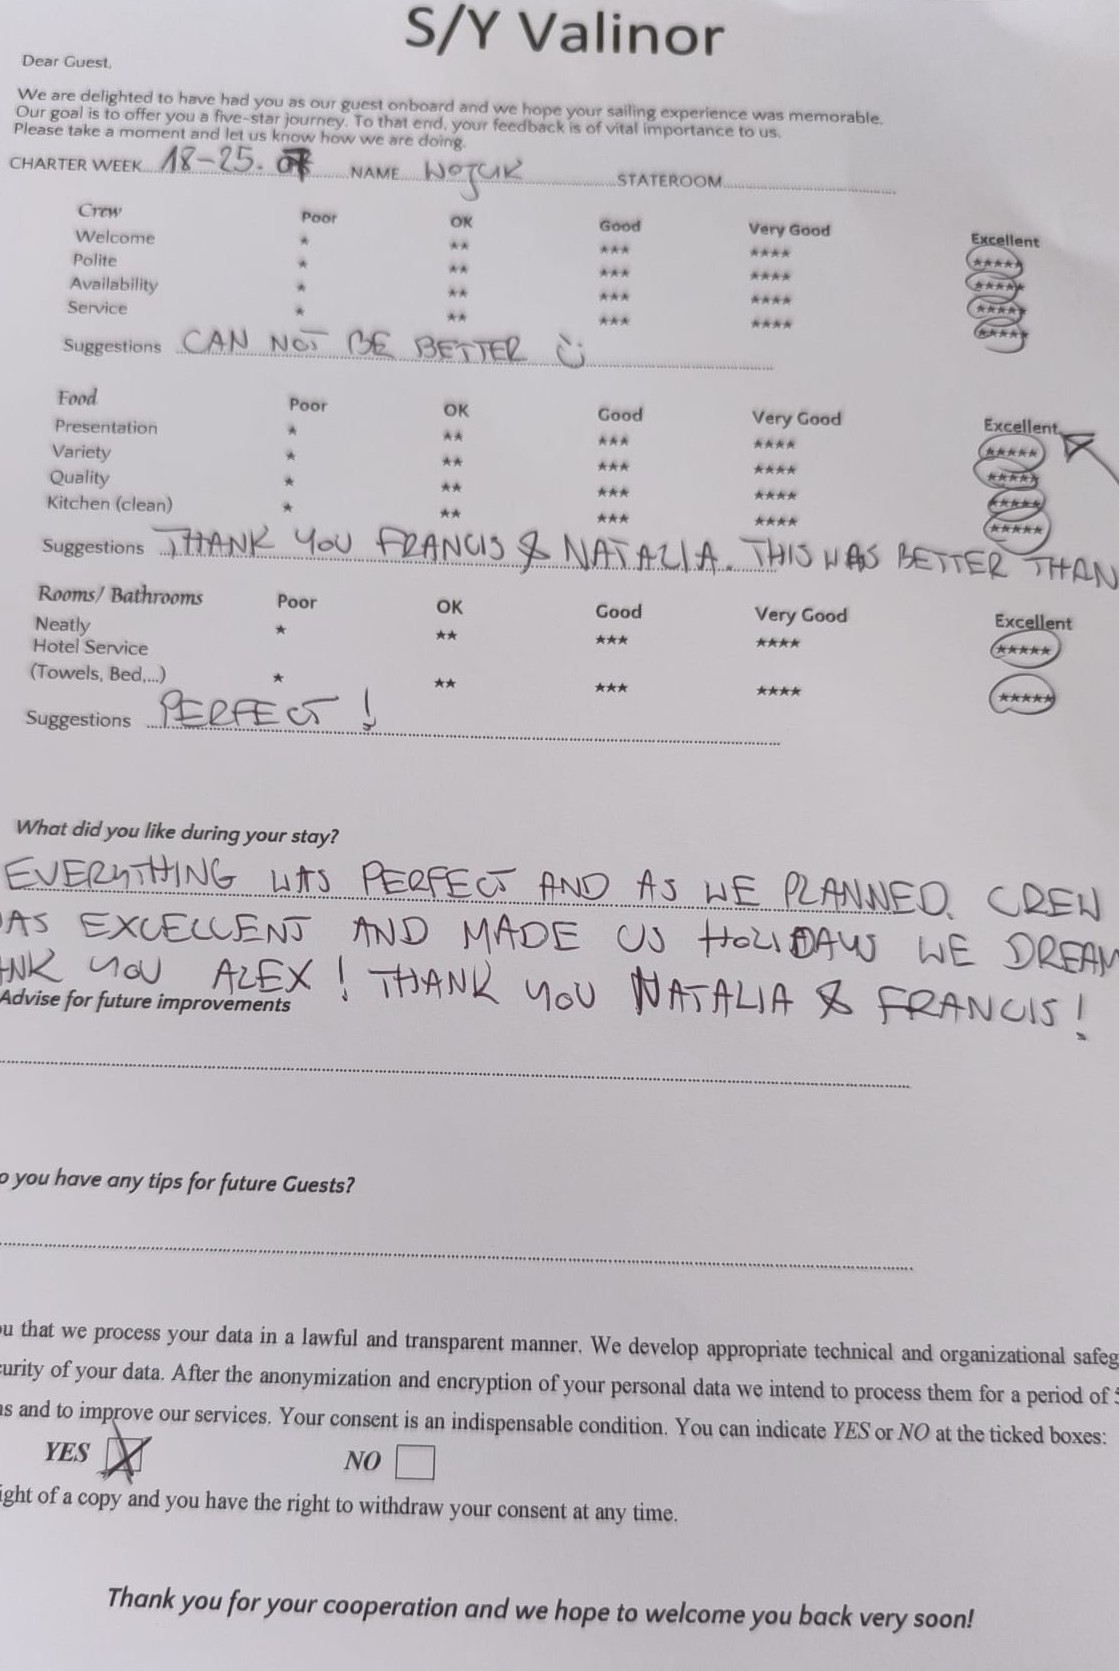 S/Y Valinor
Dear Guest,
We are delighted to have had you as our guest onboard and we hope your sailing experience was memorable.
Our goal is to offer you a five-star journey. To that end, your feedback is of vital importance to us.
Please take a moment and let us know how we are doing.
CHARTER WEEK 18-25. 07 NAME STATEROOM
Crew Poor OK Good Very Good Excellent
Welcome * ** *** **** *****
Polite * ** *** **** *****
Availability * ** *** **** *****
Service * ** *** **** *****
Suggestions CAN NOT BE BETTER
Food Poor OK Good Very Good Excellent
Presentation * ** *** **** *****
Variety * ** *** **** *****
Quality * ** *** **** *****
Kitchen (clean) * ** *** **** *****
Suggestions THANK YOU FRANCIS & NATALIA. THIS WAS BETTER THAN
Rooms/ Bathrooms Poor OK Good Very Good Excellent
Neatly * ** *** **** *****
Hotel Service
(Towels, Bed,...) * ** *** **** *****
Suggestions PERFECT !
What did you like during your stay?
EVERYTHING WAS PERFECT AND AS WE PLANNED. CREW
AS EXCELLENT AND MADE US HOLIDAYS WE DREAM
ANK YOU ALEX ! THANK YOU NATALIA & FRANCIS !
Advise for future improvements
o you have any tips for future Guests?
ou that we process your data in a lawful and transparent manner. We develop appropriate technical and organizational safeg
curity of your data. After the anonymization and encryption of your personal data we intend to process them for a period of 5
ns and to improve our services. Your consent is an indispensable condition. You can indicate YES or NO at the ticked boxes:
YES NO
ight of a copy and you have the right to withdraw your consent at any time.
Thank you for your cooperation and we hope to welcome you back very soon!